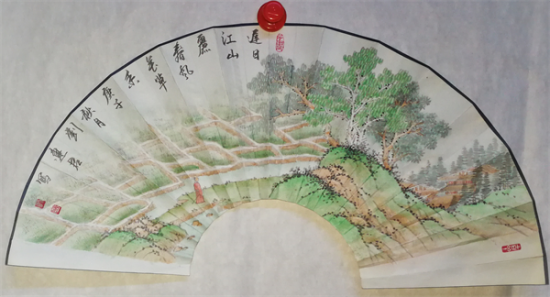 遲日
江山
麗
春風
花草
香
庚子
秋月
劉
寫